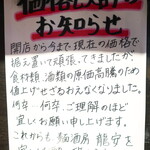 価格改訂の
お知らせ。
開店から今まで現在の価格で
据え置いて頑張ってきましたが、
食材類、酒類の原価高騰のため
値上げせざるおえなくなりました。
何卒、何卒、ご理解のほど
宜しくお願い申し上げます。
これからも 麺酒房 龍安を